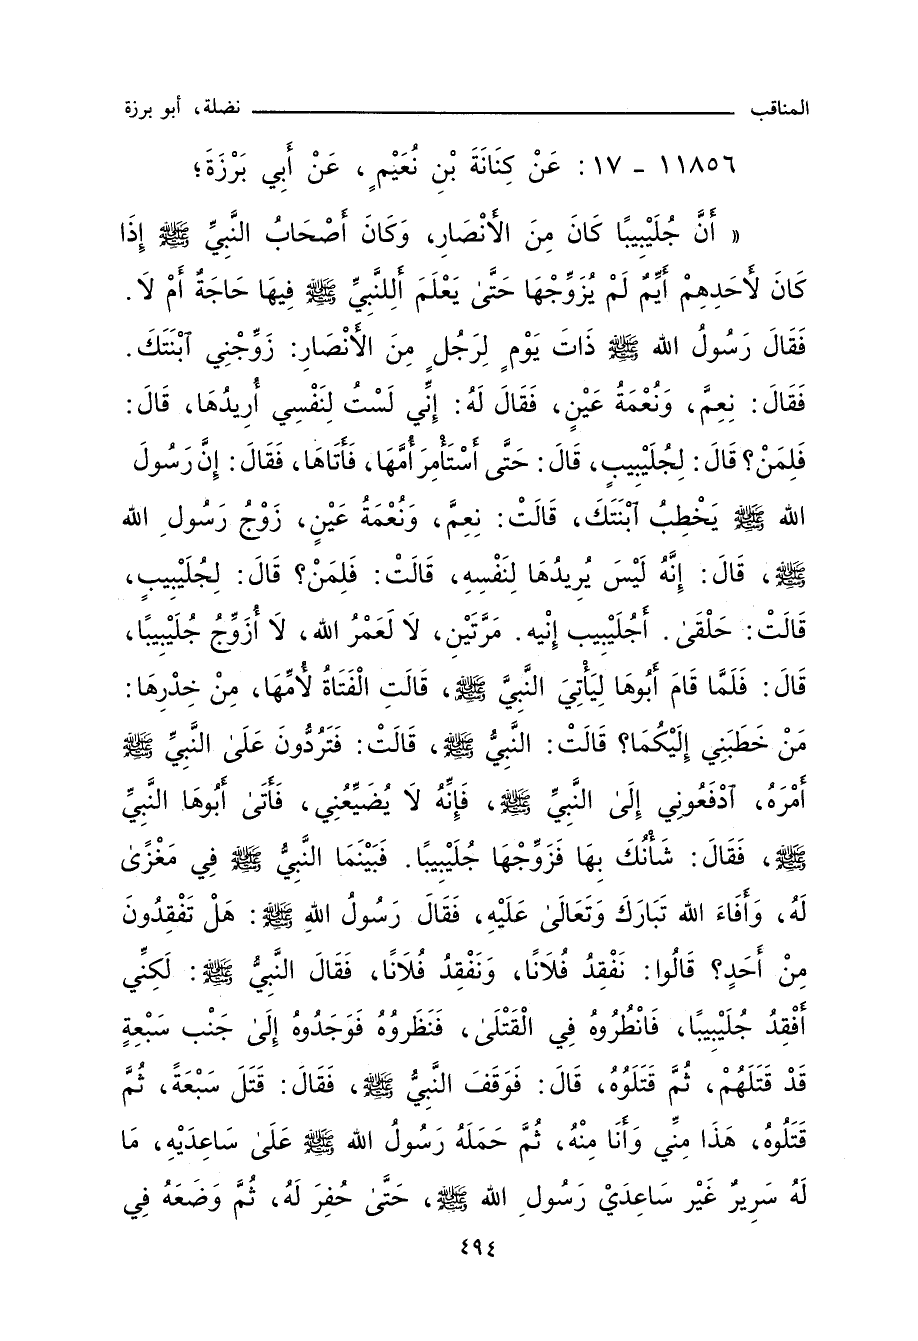 المناقب ـــــــــــــــــــــــــــــــــــــــــ نضلة، أبو برزة
١١٨٥٦ - ١٧: عَنْ كِنَانَةَ بْنِ نُعَيْمٍ، عَنْ أَبِي بَرْزَةَ؛
« أَنَّ جُلَيْبِيبًا كَانَ مِنَ الْأَنْصَارِ، وَكَانَ أَصْحَابُ النَّبِيِّ ﷺ إِذَا
كَانَ لأَحَدِهِمْ أَيِّمٌ لَمْ يُزَوِّجْهَا حَتَّىٰ يَعْلَمَ أَلِلنَّبِيِّ ﷺ فِيهَا حَاجَةٌ أَمْ لَا.
فَقَالَ رَسُولُ الله ﷺ ذَاتَ يَوْمٍ لِرَجُلٍ مِنَ الأَنْصَارِ: زَوِّجْنِي ٱبْنَتَكَ.
فَقَالَ: نِعِمَّ، وَنُعْمَةُ عَيْنٍ، فَقَالَ لَهُ: إِنِّي لَسْتُ لِنَفْسِي أُرِيدُهَا، قَالَ:
فَلِمَنْ؟ قَالَ: لِجُلَيْبِيبٍ، قَالَ: حَتَّى أَسْتَأْمِرَ أُمَّهَا، فَأَتَاهَا، فَقَالَ: إِنَّ رَسُولَ
الله ﷺ يَخْطِبُ ٱبْنَتَكَ، قَالَتْ: نِعِمَّ، وَنُعْمَةُ عَيْنٍ، زَوْجُ رَسُولِ الله
ﷺ، قَالَ: إِنَّهُ لَيْسَ يُرِيدُهَا لِنَفْسِهِ، قَالَتْ: فَلِمَنْ؟ قَالَ: لِجُلَيْبِيبٍ،
قَالَتْ: حَلْقَىٰ. أَجُلَيْبِيب إِنْيه. مَرَّتَيْنِ، لَا لَعَمْرُ الله، لَا أُزَوِّجُ جُلَيْبِيبًا،
قَالَ: فَلَمَّا قَامَ أَبُوهَا لِيَأْتِيَ النَّبِيَّ ﷺ، قَالَتِ الْفَتَاةُ لأُمِّهَا، مِنْ خِدْرِهَا:
مَنْ خَطَبَنِي إِلَيْكُمَا؟ قَالَتْ: النَّبِيُّ ﷺ، قَالَتْ: فَتَرُدُّونَ عَلَىٰ النَّبِيِّ ﷺ
أَمْرَهُ، ٱدْفَعُونِي إِلَىٰ النَّبِيِّ ﷺ، فَإِنَّهُ لَا يُضَيِّعُنِي، فَأَتَىٰ أَبُوهَا النَّبِيِّ
ﷺ، فَقَالَ: شَأْنُكَ بِهَا فَزَوِّجْهَا جُلَيْبِيبًا. فَبَيْنَمَا النَّبِيُّ ﷺ فِي مَغْزًىٰ
لَهُ، وَأَفَاءَ الله تَبَارَكَ وَتَعَالَىٰ عَلَيْهِ، فَقَالَ رَسُولُ اللهِ ﷺ: هَلْ تَفْقِدُونَ
مِنْ أَحَدٍ؟ قَالُوا: نَفْقِدُ فُلَانًا، وَنَفْقِدُ فُلَانًا، فَقَالَ النَّبِيُّ ﷺ: لَكِنِّي
أَفْقِدُ جُلَيْبِيبًا، فَانْطُرُوهُ فِي الْقَتْلَىٰ، فَنَظَرُوهُ فَوَجَدُوهُ إِلَىٰ جَنْبِ سَبْعِةٍ
قَدْ قَتَلَهُمْ، ثُمَّ قَتَلُوُه، قَالَ: فَوَقَفَ النَّبِيُّ ﷺ، فَقَالَ: قَتَلَ سَبْعَةً، ثُمَّ
قَتَلُوهُ، هَذَا مِنِّي وَأَنَا مِنْهُ، ثُمَّ حَمَلَهُ رَسُولُ الله ﷺ عَلَىٰ سَاعِدَيْهِ، مَا
لَهُ سَرِيرٌ غَيْر سَاعِدَيْ رَسُولِ الله ﷺ، حَتَّىٰ حُفِرَ لَهُ، ثُمَّ وَضَعَهُ فِي
٤٩٤